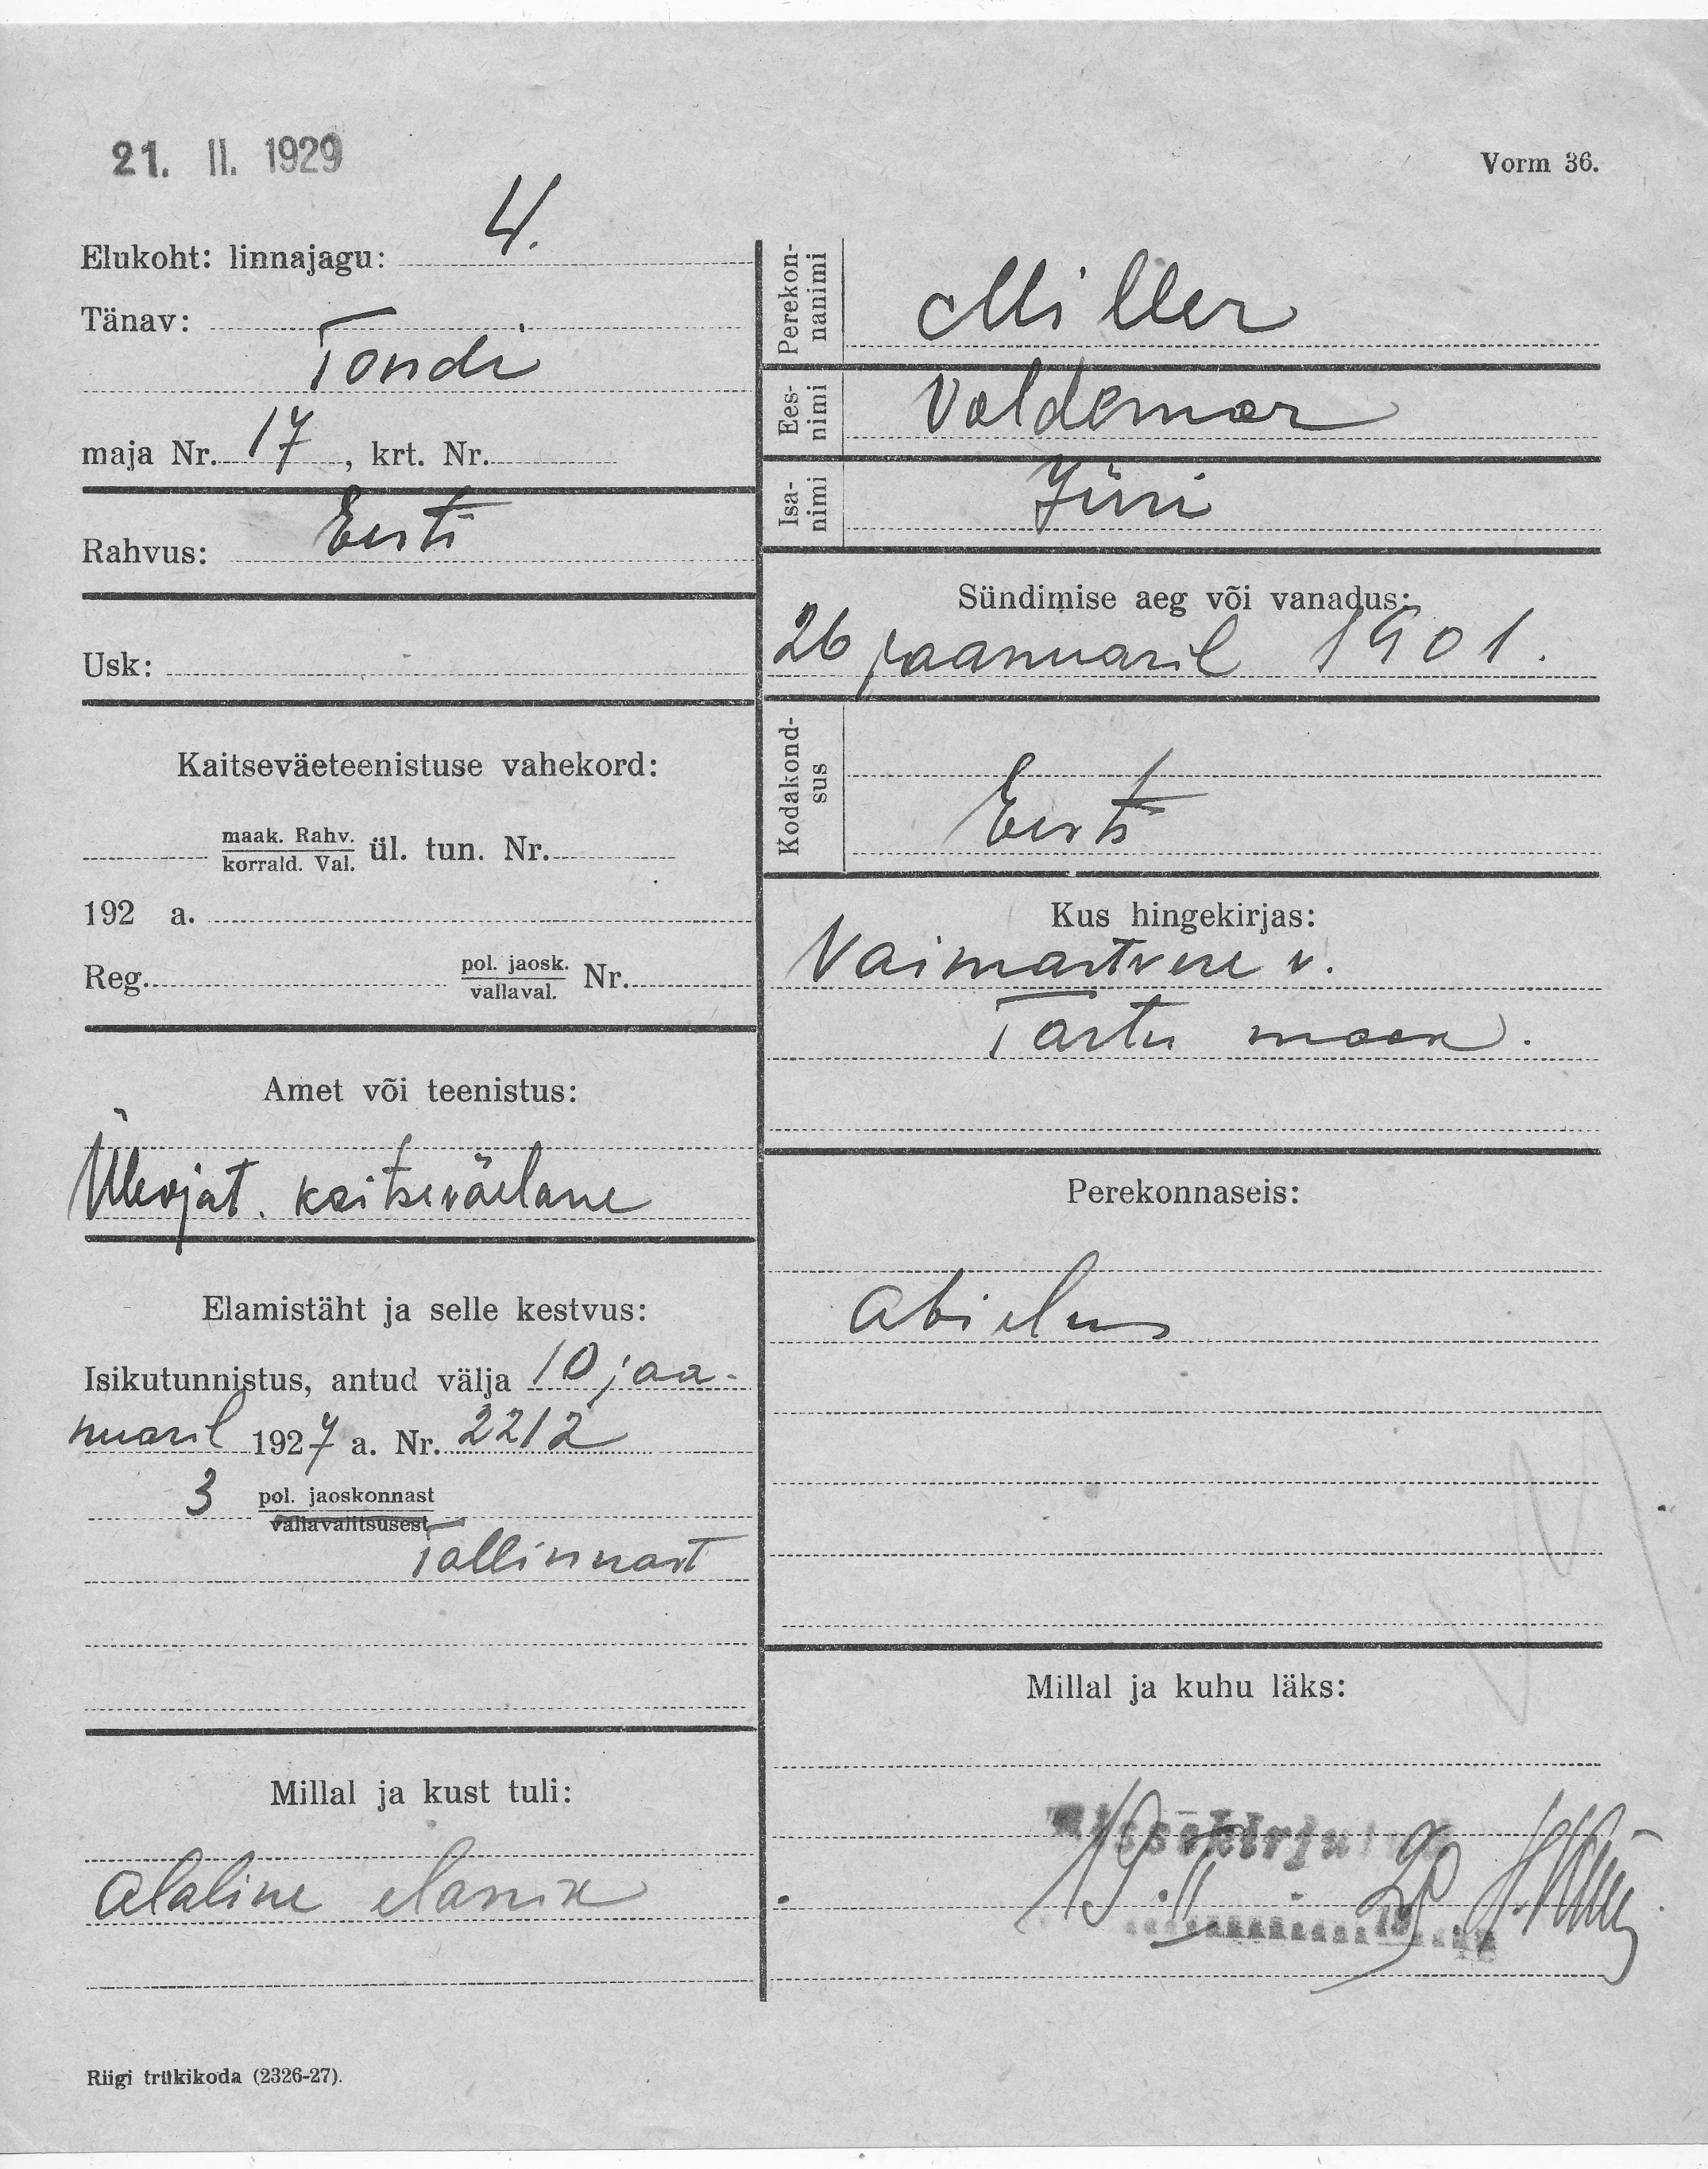 21. II. 1929
Vorm 36.
Elukoht: linnajagu: 4.
Tänav:
Tondi
maja Nr. 17, krt. Nr.
Rahvus: Eesti
Usk:
Kaitseväeteenistuse vahekord:
maak. Rahv.
korrald. Val. ül. tun. Nr.
192 a.
Reg. pol. jaosk.
vallaval. Nr.
Amet või teenistus:
Üleajat. kaitseväelane
Elamistäht ja selle kestvus:
Isikutunnistus, antud välja 10 jaa-
nuaril 1927 a. Nr. 2212
3 pol. jaoskonnast
vallavalitsusest
Tallinnast
Millal ja kust tuli:
Alaline elanik
Perekon-
nanimi
Miller
Ees-
nimi
Voldemar
Isa-
nimi
Jüri
Sündimise aeg või vanadus:
26 jaanuaril 1901.
Kodakond-
sus
Eesti
Kus hingekirjas:
Vaimastvere v.
Tartu maak.
Perekonnaseis:
Abielus
Millal ja kuhu läks:
19. II.
Riigi trükikoda (2326-27).